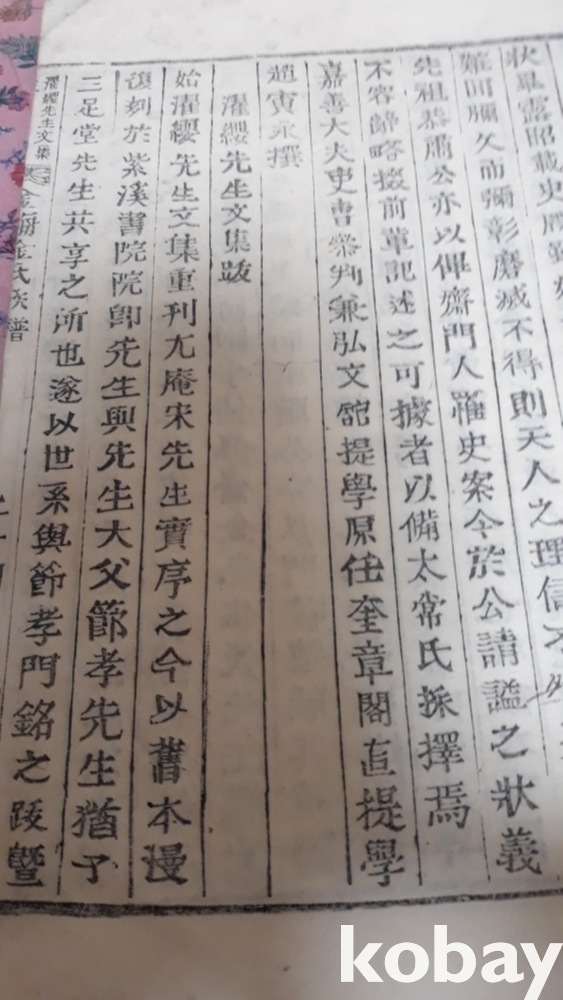 狀暴露昭載史
難叫彌久而彌彰磨滅不得則天人之理信不
先祖恭肅公亦以俾齋門人罹史案今於公請謚之狀義
不容辭略掇前輩記述之可據者以備太常氏採擇焉
嘉善大夫吏曹叅判兼弘文館提學原任奎章閣直提學
趙寅永撰
濯纓先生文集跋
始濯纓先生文集重刊尤庵宋先生實序之今以舊本漫
復刻於紫溪書院院卽先生與先生大父節孝先生猶子
三足堂先生共享之所也遂以世系與節孝門銘之跋曁
濯纓先生文集
金氏族譜
kobay